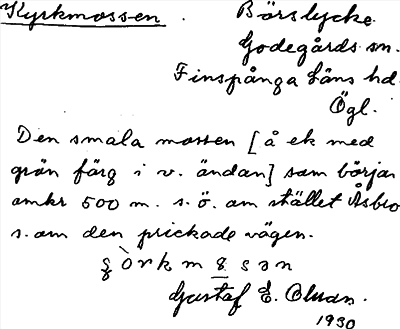 Kyrkmossen. Börslycke.
Godegårds sn.
Finspånga läns hd.
Ögl.
Den smala mossen [å ek med
grön färg i v. ändan] som börjar
omkr 500 m. s.ö. om stället Åsbro
s. om den prickade vägen.
Gustaf E. Olsson.
1930